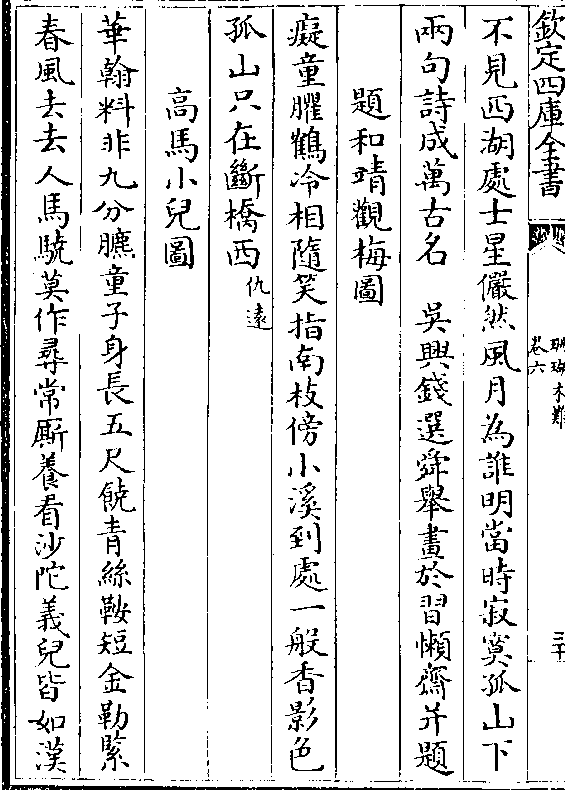 欽定四庫全書
珊瑚木難
卷六
三十
不見西湖處士星儼然風月為誰明當時寂寞孤山下
兩句詩成萬古名　吳興錢選舜舉畫於習懶齋并題
題和靖觀梅圖
癡童臞鶴冷相隨笑指南枝傍小溪到處一般香影色
孤山只在斷橋西仇遠
高馬小兒圖
華翰料非九分臕童子身長五尺饒青絲鞍短金勒緊
春風去去人馬驍莫作尋常厮養看沙陀義兒皆如漢